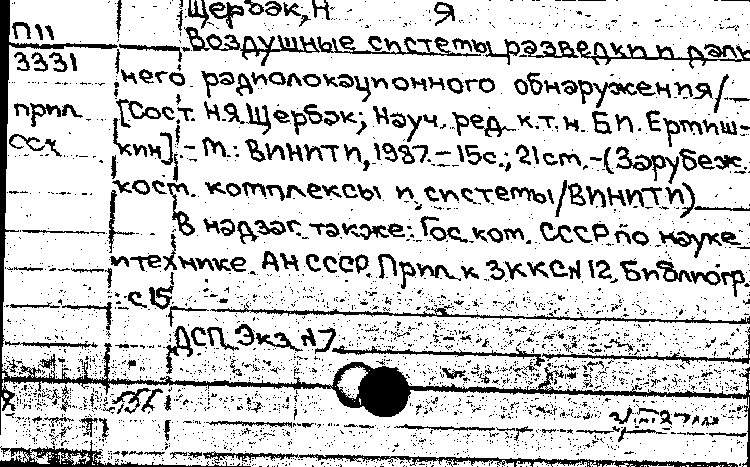 Щербак, Н Я
П11
Воздушные системы разведки и даль
3331
него радиолокационного обнаружения/
прил
[Сост. Н.Я. Щербак; Науч. ред. к.т.н. Б.П. Ертиш-
сск
кин] - М.: ВИНИТИ, 1987. - 15с.; 21см. - (Зарубеж.
косм. комплексы и системы/ВИНИТИ)
В надзаг. также: Гос. ком. СССР по науке
и технике. АН СССР. Прил. к ЗККС N 12. Библиогр.
: с 15
ДСП. Экз. N7